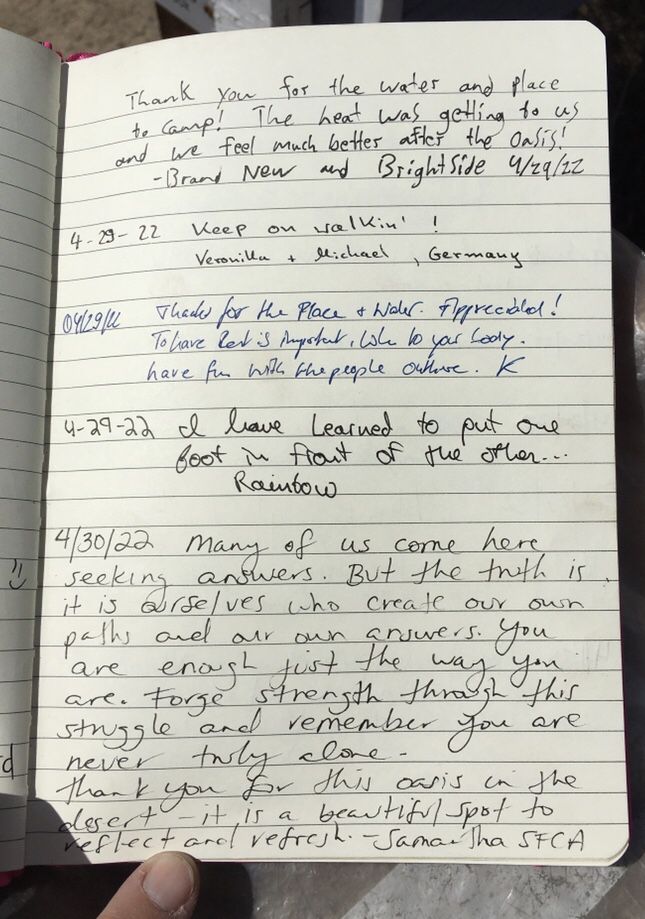 Thank you for the water and place
to camp! The heat was getting to us
and we feel much better after the Oasis!
-Brand New and BrightSide 4/29/22
4-29-22 Keep on walkin' !
Veronika + Michael , Germany
04/29/22 Thanks for the Place + Water. Appreciated!
To have Rest is important, like to your body.
have fun with the people outhere. K
4-29-22 I have Learned to put one
foot in front of the other...
Rainbow
4/30/22 Many of us come here
seeking answers. But the truth is
it is ourselves who create our own
paths and our own answers. You
are enough just the way you
are. Forge strength through this
struggle and remember you are
never truly alone-
Thank you for this oasis in the
desert - it is a beautiful spot to
reflect and refresh. -Samantha SFCA